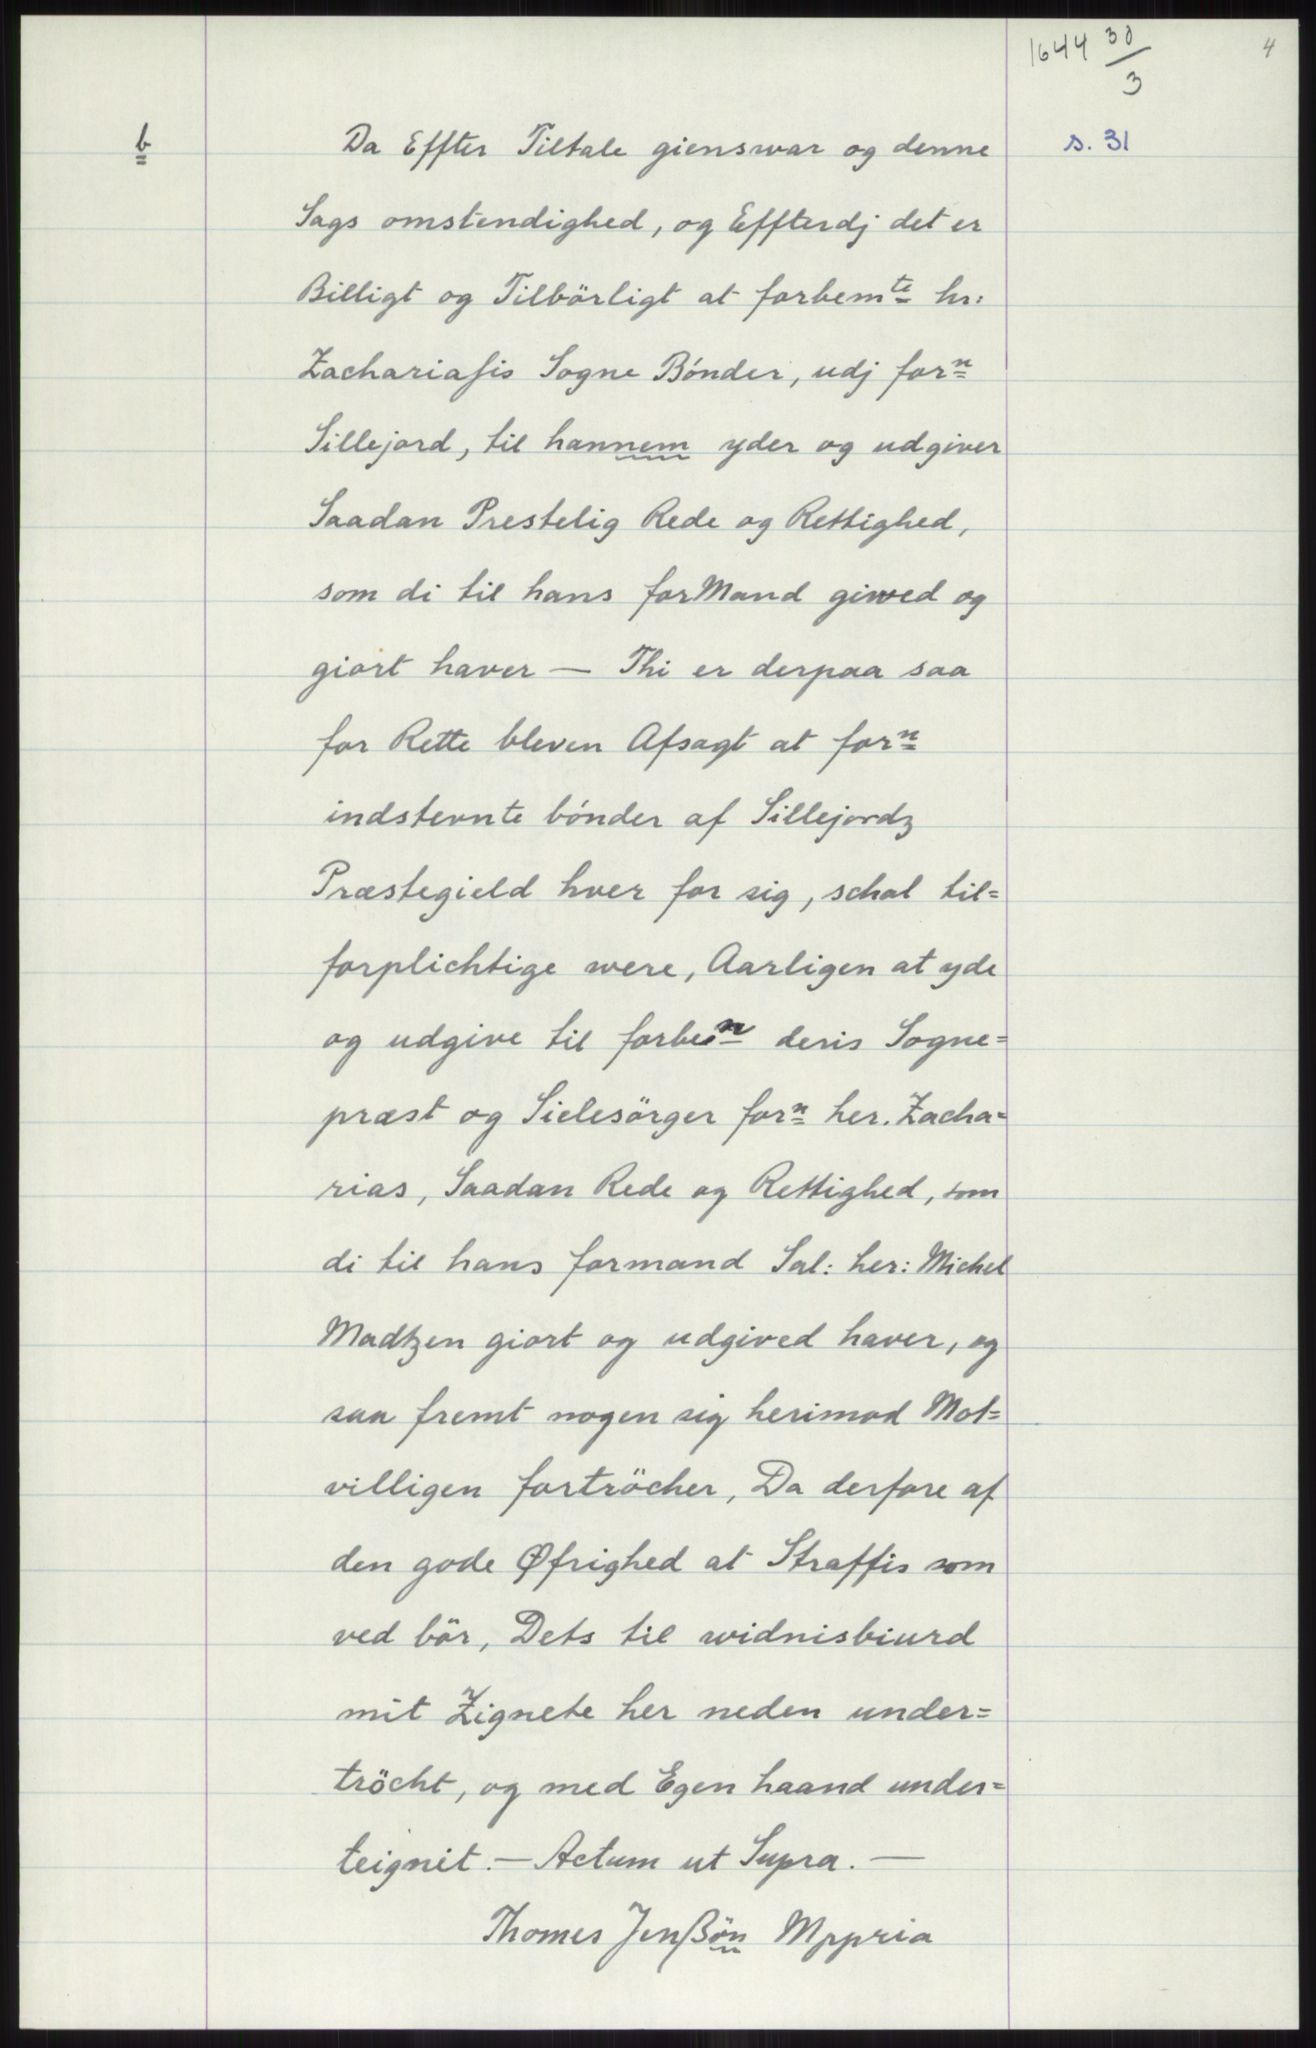 1644 30/3
4
b
s. 31
Da Effter Tiltale gienswar og denne
Sags omstendighed, og Effterdj det er
Billigt og Tilbörligt at forbemte hr:
Zachariasis Sogne Bónder, udj forn
Sillejord, til hannem yder og udgiver
Saadan Prestelig Rede og Rettighed,
som di til hans forMand giwed og
giort haver — Thi er derpaa saa
for Rette bleven Afsagt at forn
indstevnte bónder af Sillejordz
Præstegield hver for sig, schal til=
forplichtige were, Aarligen at yde
og udgive til forben deris Sogne=
præst og Sielesörger forn her. Zacha=
rias, Saadan Rede og Rettighed, som
di til hans formand Sal: her: Michel
Madtzen giort og udgived haver, og
saa fremt nogen sig herimod Mot=
villigen fortröcher, Da derfore af
den gode Øfrighed at Straffis som
ved bör, Dets til widnisbiurd
mit Zignete her neden under=
tröcht, og med Egen haand under=
teignit. — Actum ut Supra. —
Thomes Jenßön Mppria